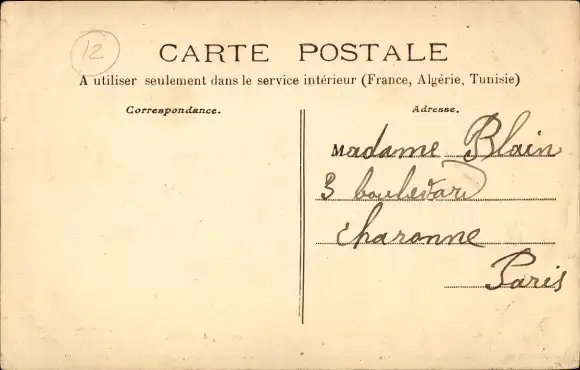 12
CARTE POSTALE
A utiliser seulement dans le service intérieur (France, Algérie, Tunisie)
Correspondance.
Adresse.
Madame Blain
3 boulevard
Charonne
Paris